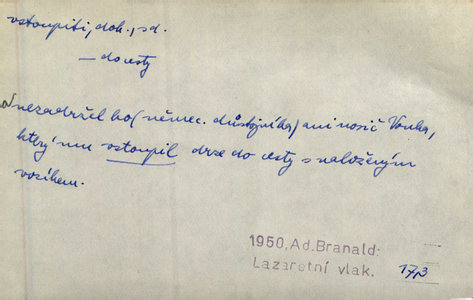 vstoupiti, dok., sd.
— do cesty
nezadržel ho (němec. důstojníka) ani nosič Vouha,
který mu vstoupil drze do cesty s naloženým
vozíkem.
1950, Ad. Branald:
Lazaretní vlak. 173